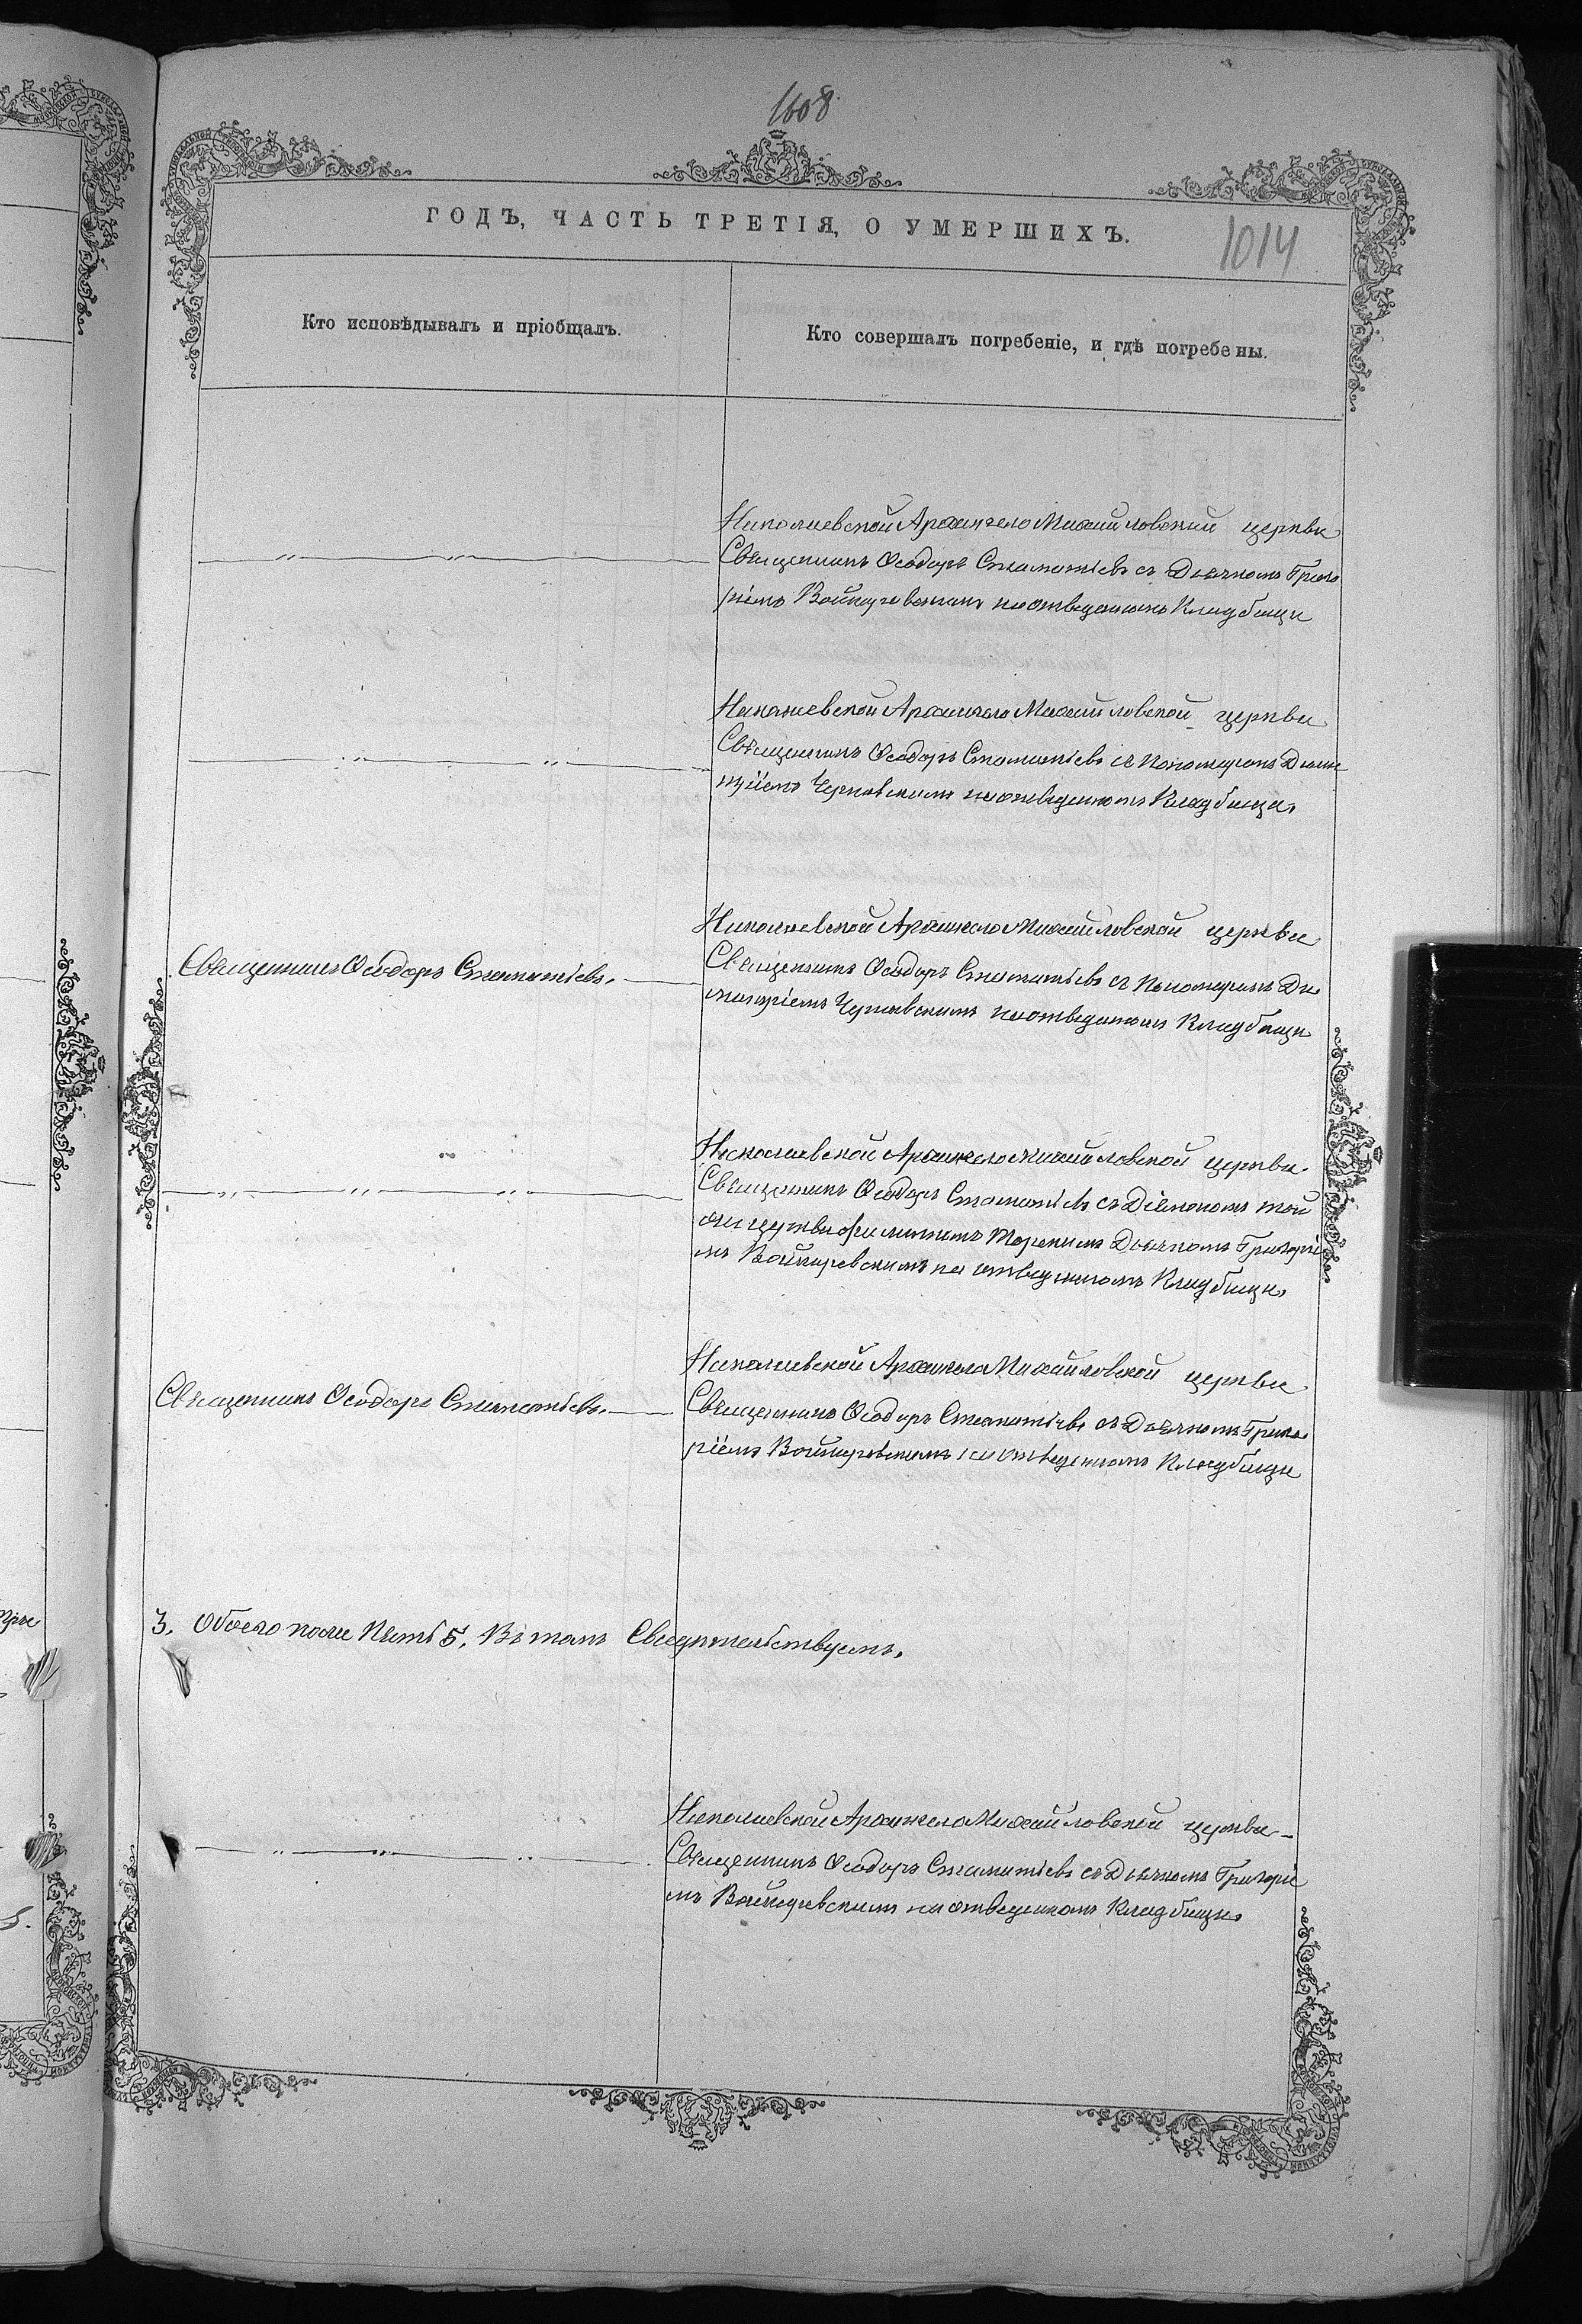 1608
ГОДЪ, ЧАСТЬ ТРЕТІЯ, О УМЕРШИХЪ.
1014
Кто исповѣдывалъ и пріобщалъ.
Кто совершалъ погребеніе, и гдѣ погребены.
Николаевской Архангело Михайловской церкви
Священникъ Ѳеодоръ Стаматіевъ съ Дьячкомъ Григо
ріемъ Войнаровскимъ на отведенномъ Кладбищи
Николаевской Архангело Михайловской церкви
Священникъ Ѳеодоръ Стаматіевъ съ Пономаремъ Дими
тріемъ Чернявскимъ на отведенномъ Кладбищи.
Священникъ Ѳеодоръ Стаматіевъ.
Николаевской Архангело Михайловской церкви
Священникъ Ѳеодоръ Стаматіевъ съ Пономаремъ Ди
митріемъ Чернявскимъ на отведенномъ Кладбищи
Николаевской Архангело Михайловской церкви
Священникъ Ѳеодоръ Стаматіевъ съ Діякономъ той
же церкви Дьячкомъ Григоріе
мъ Войнаровскимъ на отведенномъ Кладбищи.
Священникъ Ѳеодоръ Стаматіевъ.
Николаевской Архангело Михайловской церкви
Священникъ Ѳеодоръ Стаматіевъ съ Дьячкомъ Григо
ріемъ Войнаровскимъ на отведенномъ Кладбищи
3. Обоего пола Пять 5. Въ томъ Свидѣтельствуемъ.
Николаевской Архангело Михайловской церкви
Священникъ Ѳеодоръ Стаматіевъ съ Дьячкомъ Григоріе
мъ Войнаровскимъ на отведенномъ Кладбищи.